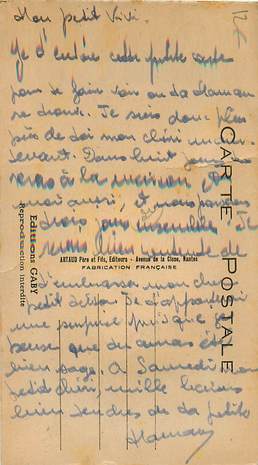 Mon petit Vivi.
Je t'envoie cette petite carte
pour te faire voir où ta Maman
se trouve. Je suis donc plus
près de toi mon chéri
Dans huit jours
à la maison,
aussi, et nous
trois jours ensemble. Je
bien contente de
t'embrasser mon
petit Je t'apporterai
une surprise
pense que tu auras été
bien sage. A Samedi mon
petit chéri, mille baisers
bien tendres de ta petite
Maman
12f
CARTE POSTALE
Editions GABY
Reproduction interdite
ARTAUD Père et Fils, Editeurs - Avenue de la Close, Nantes
FABRICATION FRANÇAISE